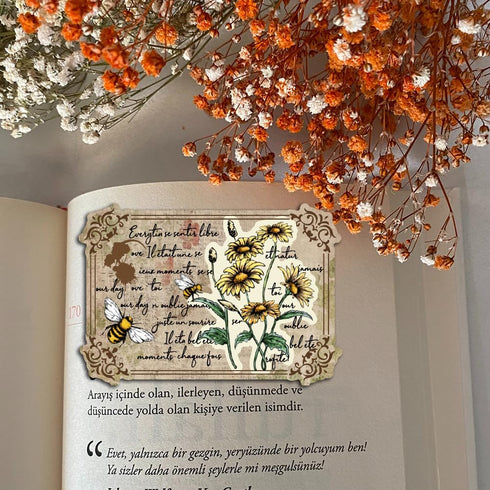 Everytin se sentir libre
ove Il était une se et natur
ieux moments se jamais
our day ove toi toi our
our day n oublie jamais
juste un sourire sen oublie
Il eto bel ete bel ete
moments chaque fois profite
170
Arayış içinde olan, ilerleyen, düşünmede ve
düşüncede yolda olan kişiye verilen isimdir.
“Evet, yalnızca bir gezgin, yeryüzünde bir yolcuyum ben!
Ya sizler daha önemli şeylerle mi meşgulsünüz!